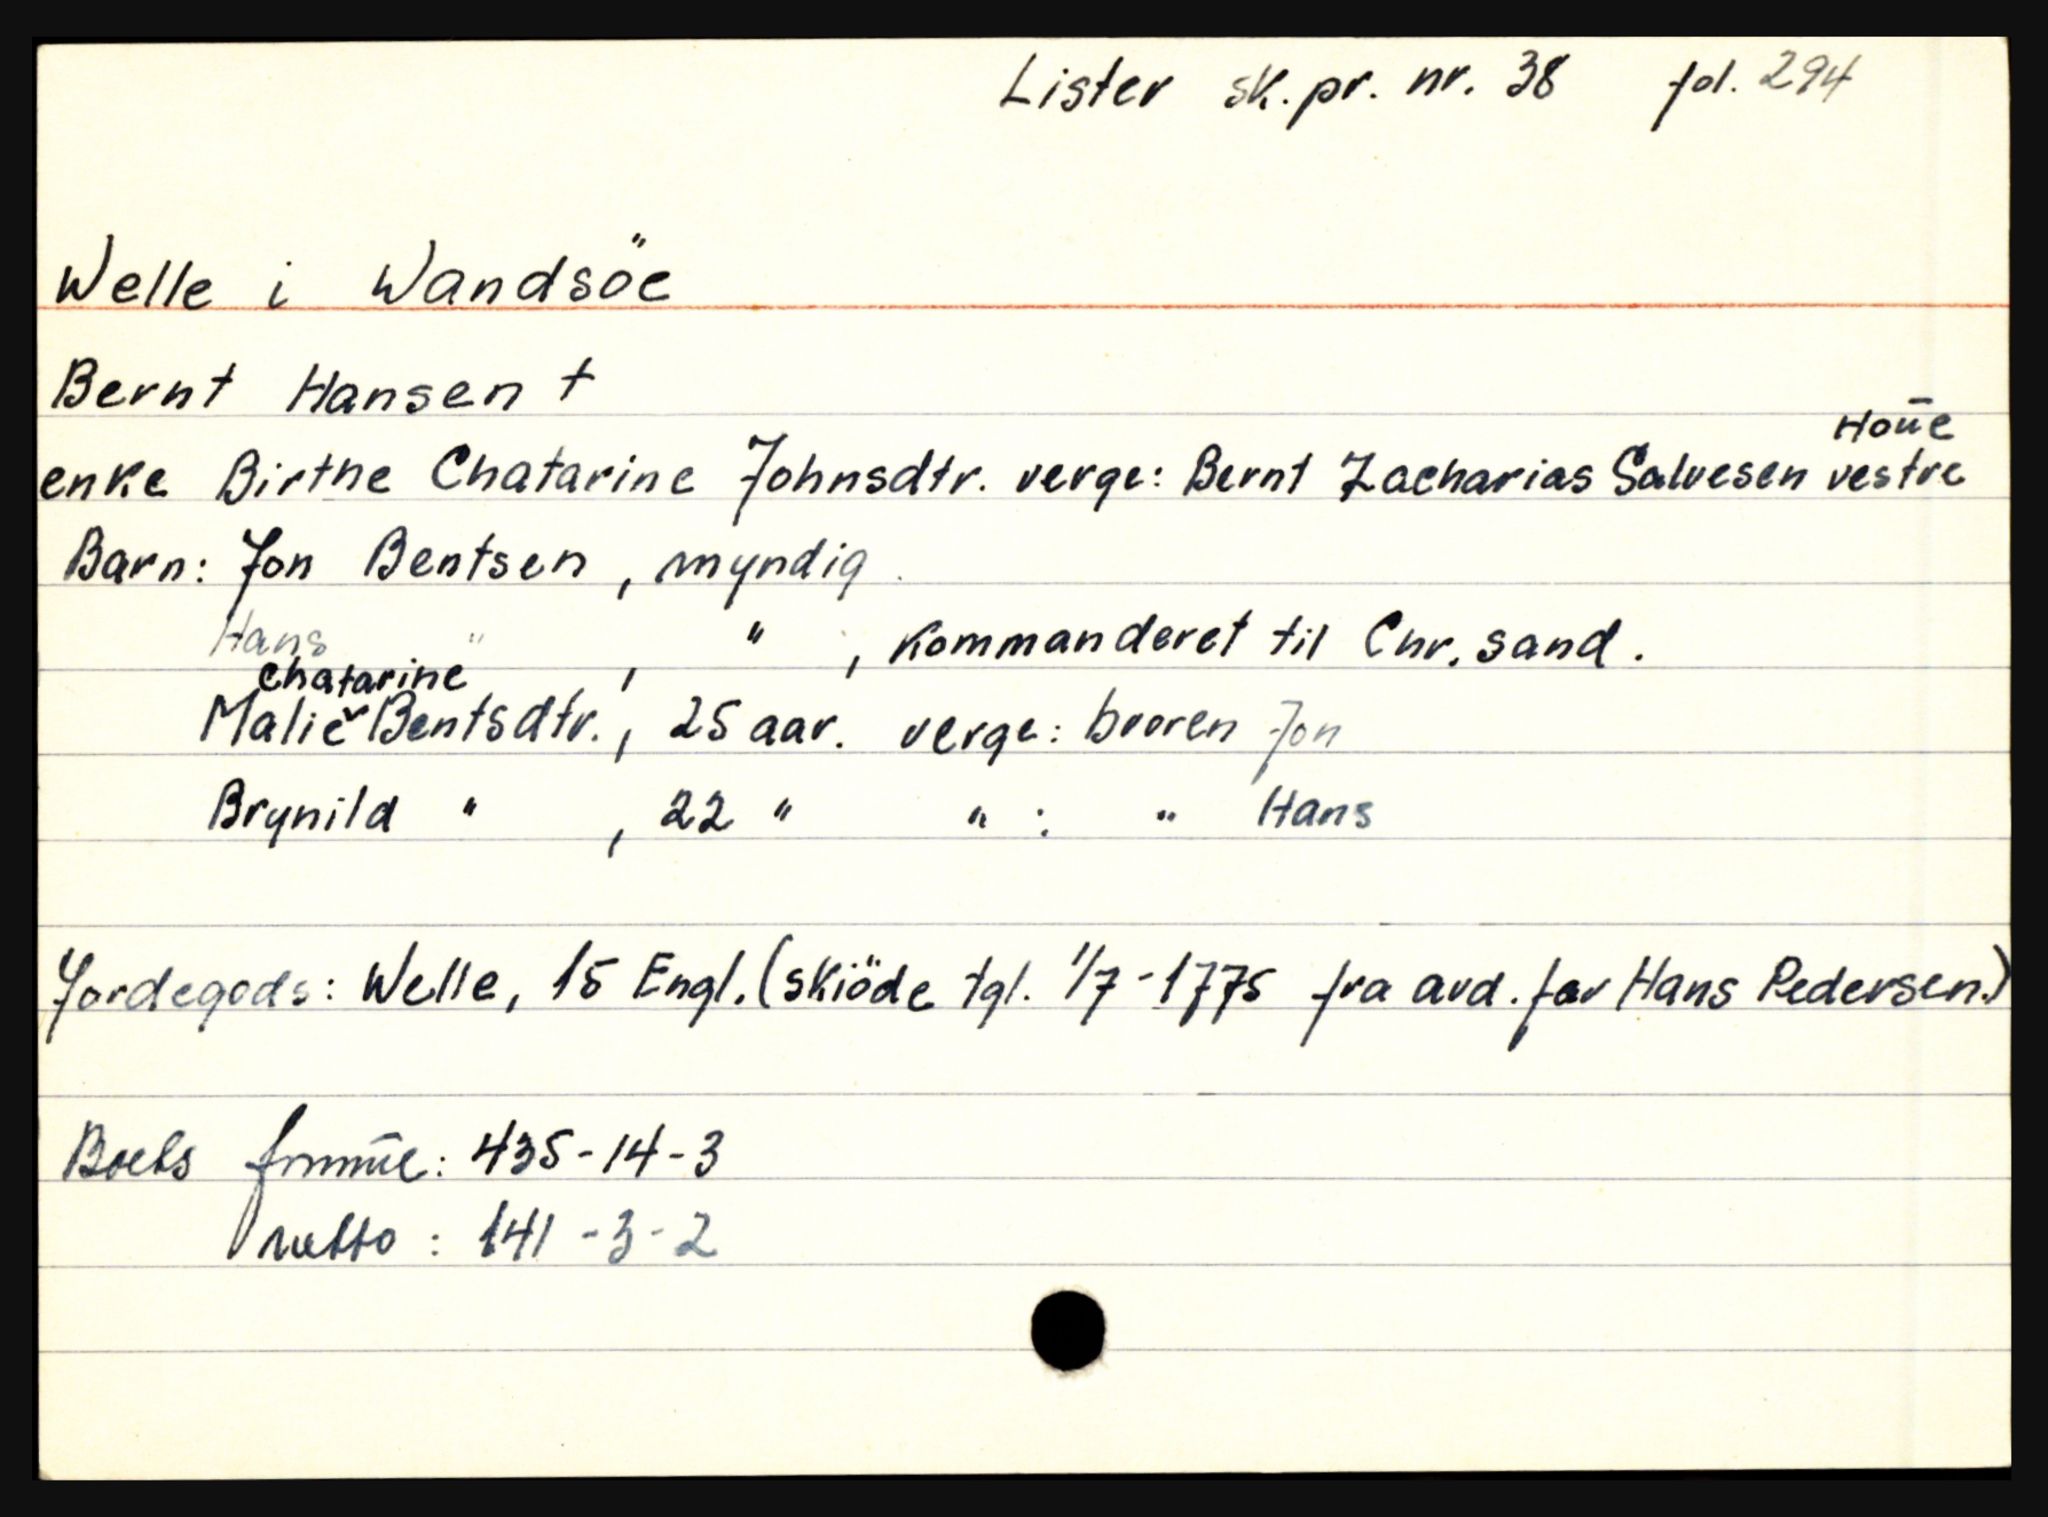 Lister sk. pr. nr. 38 fol. 294
Welle i Wandsöe
Bernt Hansen †
Houe
enke Birthe Chatarine Johnsdtr. verge: Bernt Zacharias Salvesen vestre
Barn: Jon Bentsen, myndig.
Hans " , " , kommanderet til Chr. sand.
Chatarine
Malie Bentsdtr., 25 aar. verge: broren Jon
Brynild " , 22 " " : " Hans
Jordegods: Welle, 15 Engl. (skiöde tgl. 1/7-1775 fra avd. far Hans Pedersen.)
Boets : 435-14-3
netto : 141-3-2